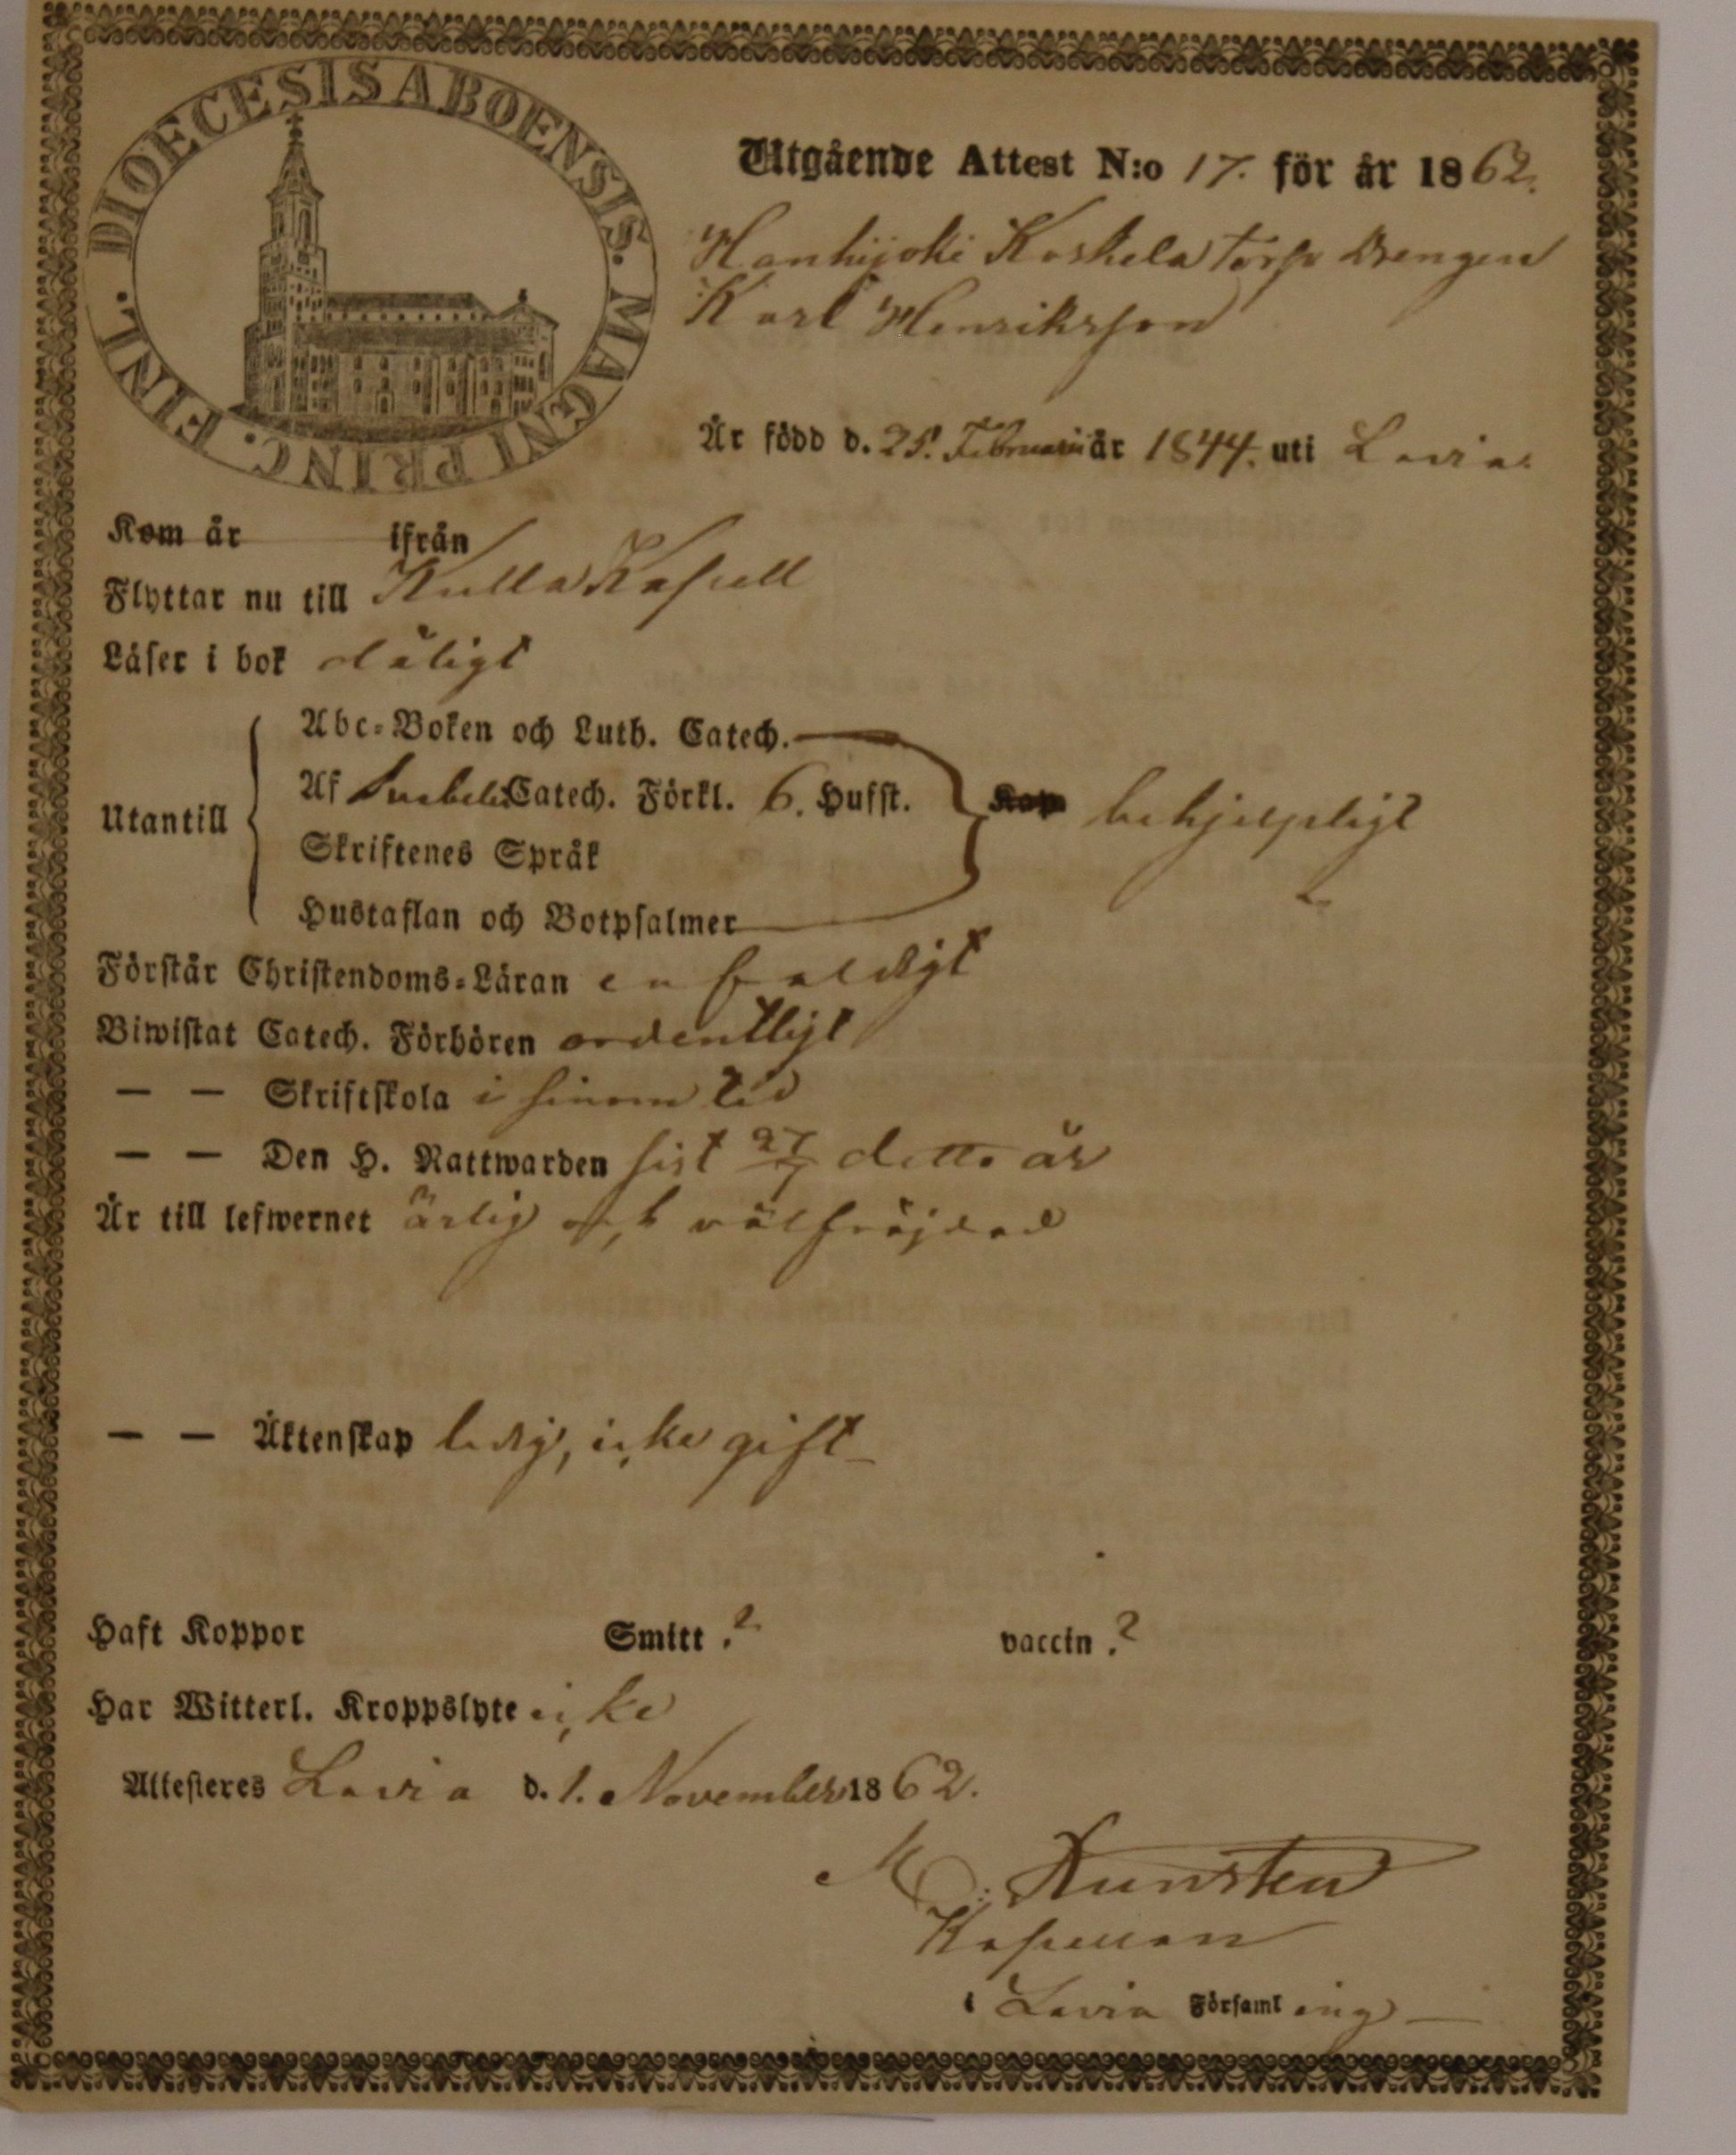 DIOECESIS ABOENSIS. MAGNI PRINC. FINL.
Utgående Attest N:o 17. för år 1862.
Hanhijoki Koskela torp Drengen
Karl Henriksson
Är född d. 25. Februarii år 1844. uti Lavia.
Kom år ifrån
Flyttar nu till Kulla Kapell
Läser i bok dåligt
Utantill
Abc-Boken och Luth. Catech.
Af Svebelii Catech. Förkl. 6. Hufst.
Kap behjelpligt
Skriftenes Språk
Hustaflan och Botpsalmer
Förstår Christendoms-Läran enfaldigt
Biwistat Catech. Förhören ordentligt
— — Skriftskola i sinom tid
— — Den H. Nattwarden sist 27/7 detta år
Är till lefwernet ärlig och välfräjdad
— — Äktenskap ledig, icke gift
Haft Koppor Smitt.? vaccin.?
Har Witterl. Kroppslyte icke
Attesteres Lavia d. 1. November 1862.
Kapellan
i Lavia Församling